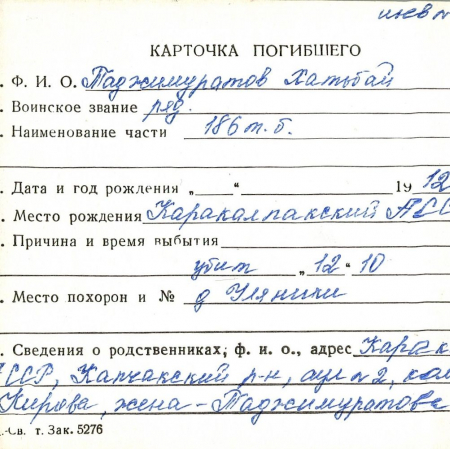 инв №
КАРТОЧКА ПОГИБШЕГО
. Ф. И. О. Таджимуратов Хатьбай
. Воинское звание ряд.
. Наименование части 186 т. б.
. Дата и год рождения „ “ 1912
. Место рождения Каракалпакский АСС
. Причина и время выбытия
убит „12“ 10
. Место похорон и № д Уляники
. Сведения о родственниках, ф. и. о., адрес Карак
ССР, Капчакский р-н, аул №2, кол
Кирова, жена - Таджимуратова
.-Св. т. Зак. 5276